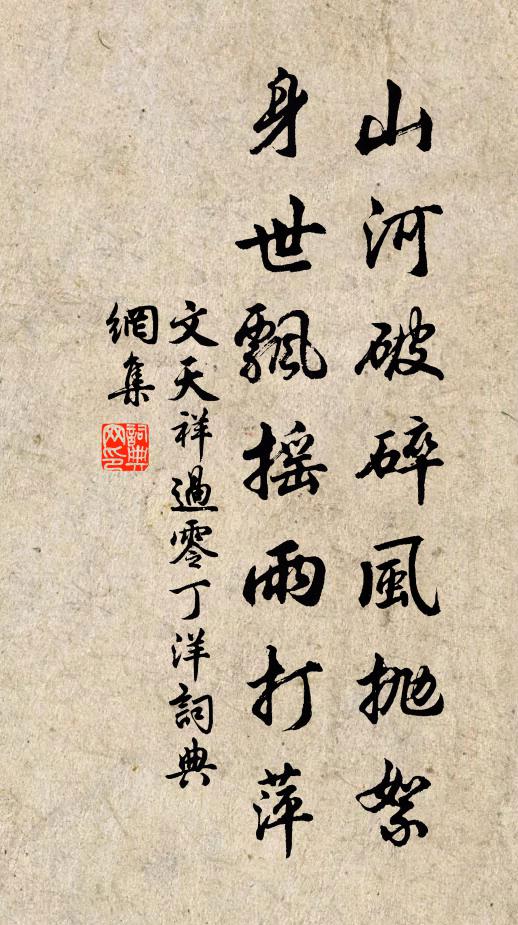 山河破碎風抛絮
身世飄摇雨打萍
文天祥過零丁洋詞典
網集
詞典
网印